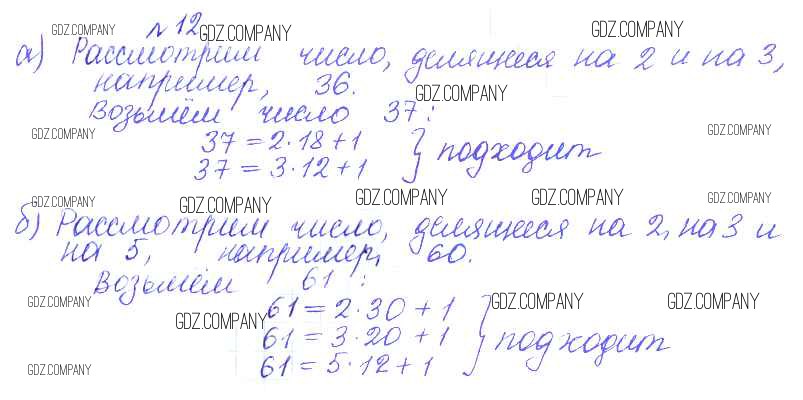 №12
GDZ.COMPANY GDZ.COMPANY GDZ.COMPANY
а) Рассмотрим число, делящееся на 2 и на 3,
например, 36.
GDZ.COMPANY
Возьмём число 37:
GDZ.COMPANY GDZ.COMPANY
37 = 2·18+1
37 = 3·12+1 } подходит
GDZ.COMPANY GDZ.COMPANY GDZ.COMPANY GDZ.COMPANY GDZ.COMPANY
б) Рассмотрим число, делящееся на 2, на 3 и
на 5, например, 60.
Возьмём 61:
GDZ.COMPANY GDZ.COMPANY GDZ.COMPANY
61 = 2·30 + 1
GDZ.COMPANY
61 = 3·20 + 1 } подходит
61 = 5·12 + 1
GDZ.COMPANY